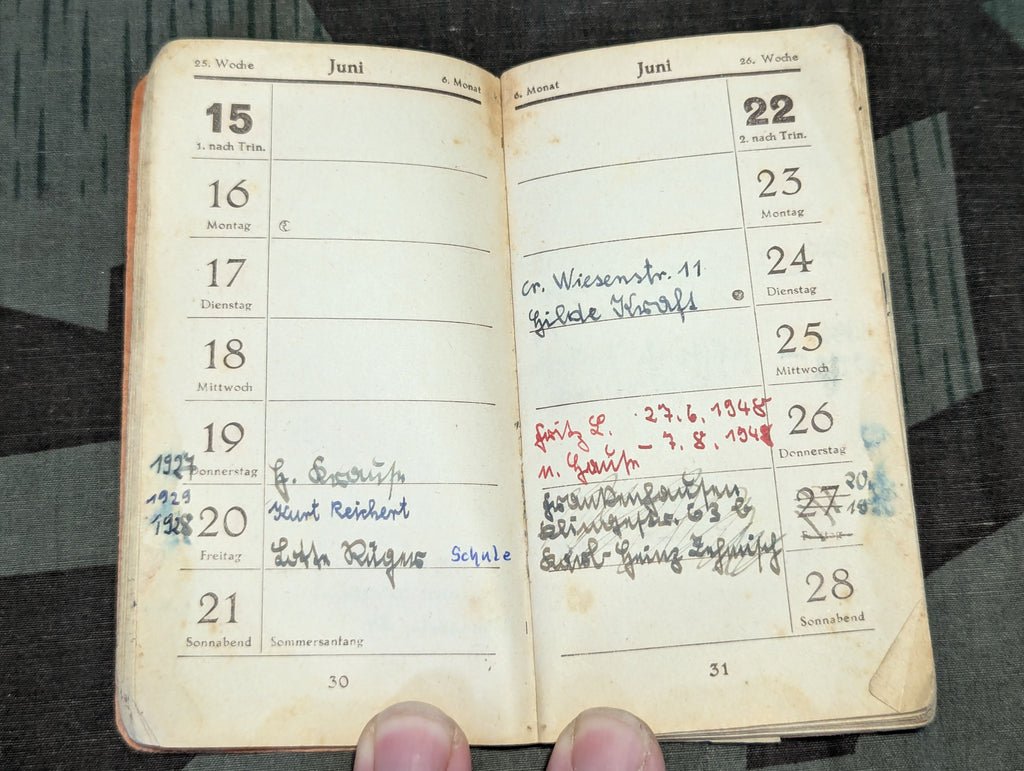 25. Woche Juni 6. Monat
15
1. nach Trin.
16
Montag
17
Dienstag
18
Mittwoch
19
1927 Donnerstag H. Krause
1929 Kurt Reichert
20
1928
Freitag Lotte Rüger Schule
21
Sonnabend Sommersanfang
30
6. Monat Juni 26. Woche
22
2. nach Trin.
23
Montag
24
cr. Wiesenstr. 11
Dienstag
Hilde Kraft
25
Mittwoch
26
Fritz L. 27.6.1948
n. Hause – 7.8.1948
Donnerstag
Frankenhausen
27 20.
Klingestr. 63 b
Karl-Heinz Lehnisch
28
Sonnabend
31